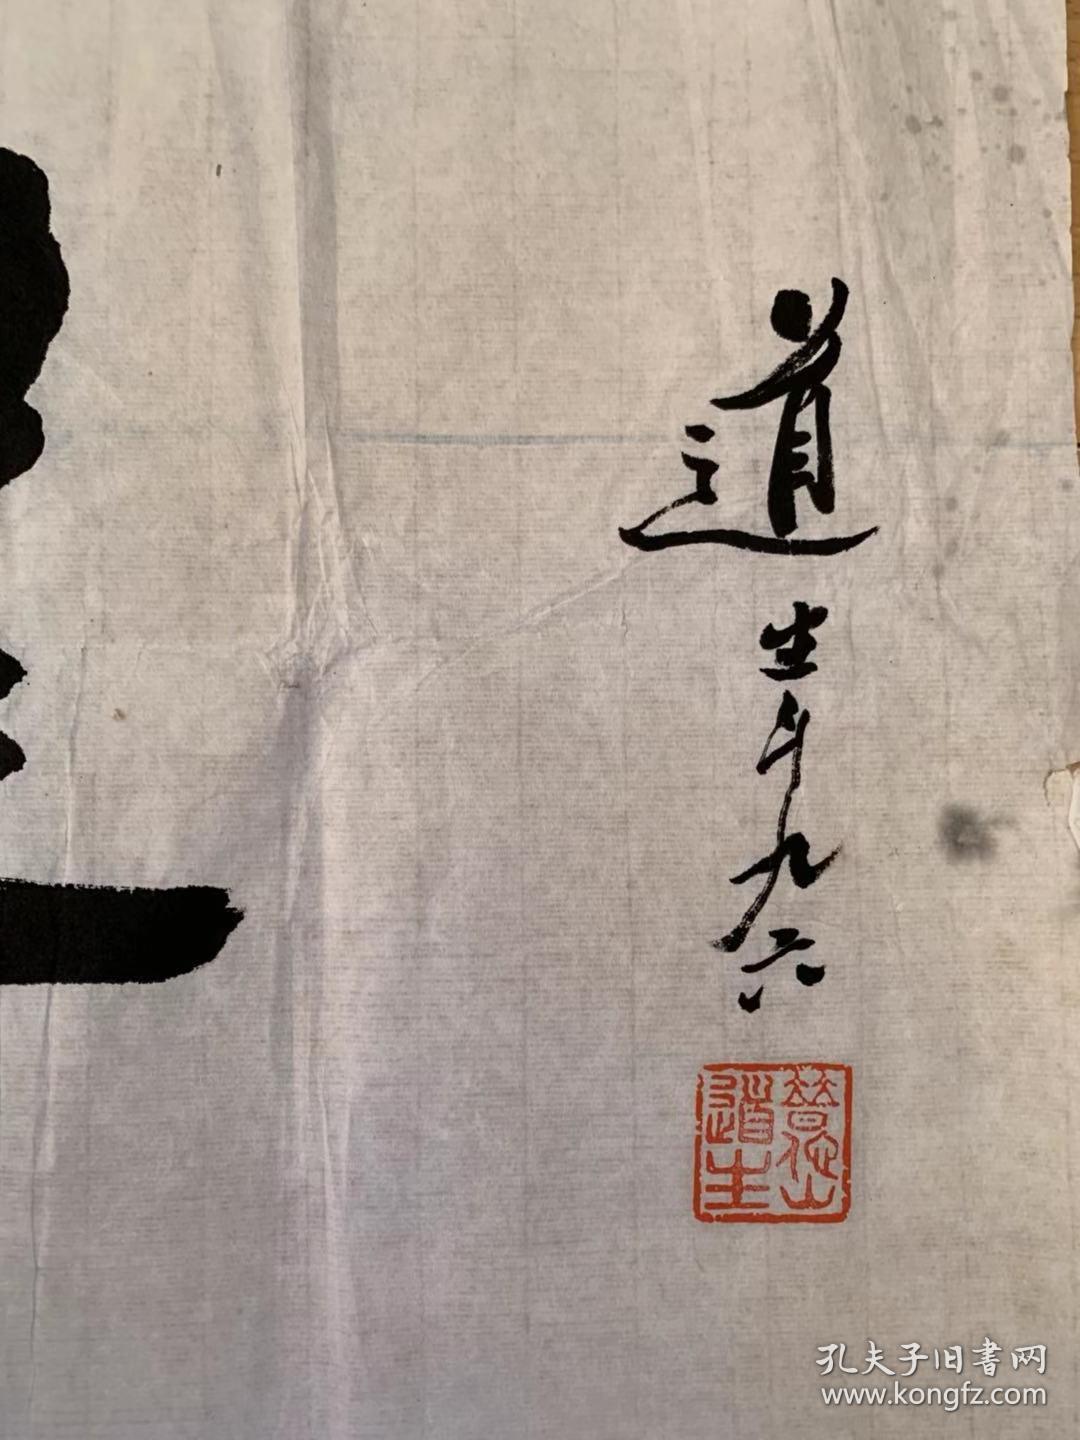 道生年九六
道生
孔夫子旧书网
www.kongfz.com